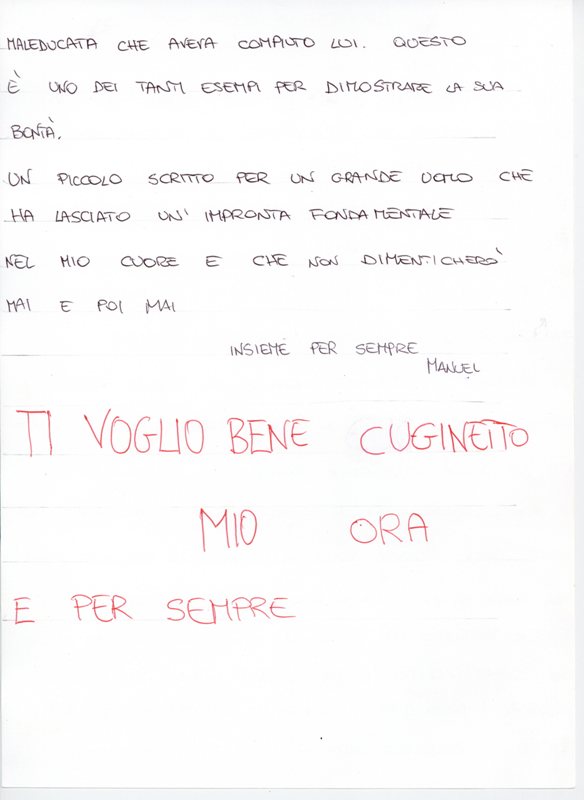 MALEDUCATA CHE AVEVA COMPIUTO LUI. QUESTO
È UNO DEI TANTI ESEMPI PER DIMOSTRARE LA SUA
BONTÀ.
UN PICCOLO SCRITTO PER UN GRANDE UOMO CHE
HA LASCIATO UN' IMPRONTA FONDAMENTALE
NEL MIO CUORE E CHE NON DIMENTICHERÒ
MAI E POI MAI
INSIEME PER SEMPRE
MANUEL
TI VOGLIO BENE CUGINETTO
MIO ORA
E PER SEMPRE